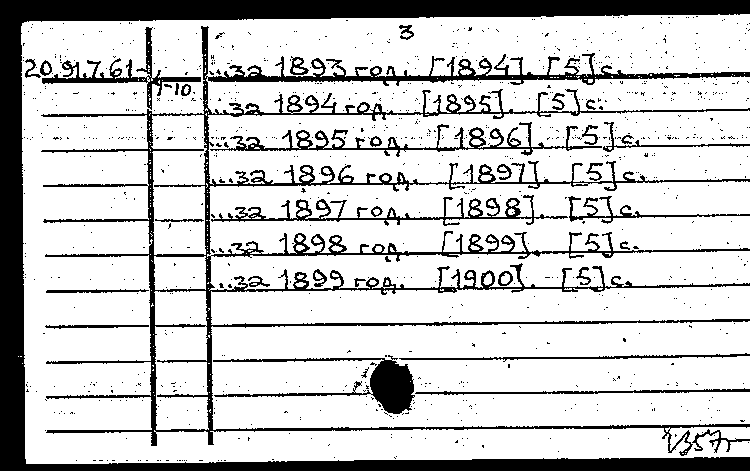 3
20.91.7.61- ...за 1893 год. [1894]. [5] с.
4-10 ...за 1894 год. [1895]. [5] с.
...за 1895 год. [1896]. [5] с.
...за 1896 год. [1897]. [5] с.
...за 1897 год. [1898]. [5] с.
...за 1898 год. [1899]. [5] с.
...за 1899 год. [1900]. [5] с.